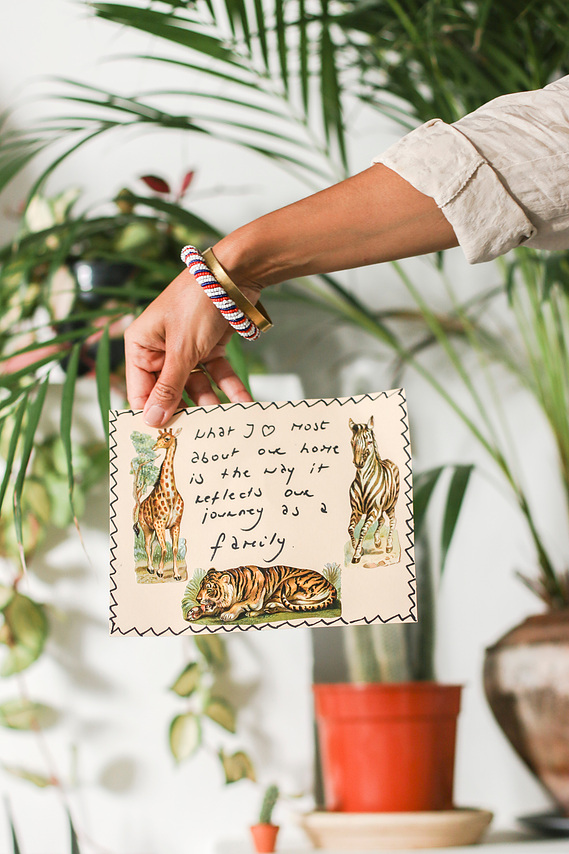 What I ♡ most
about our home
is the way it
reflects our
journey as a
family.